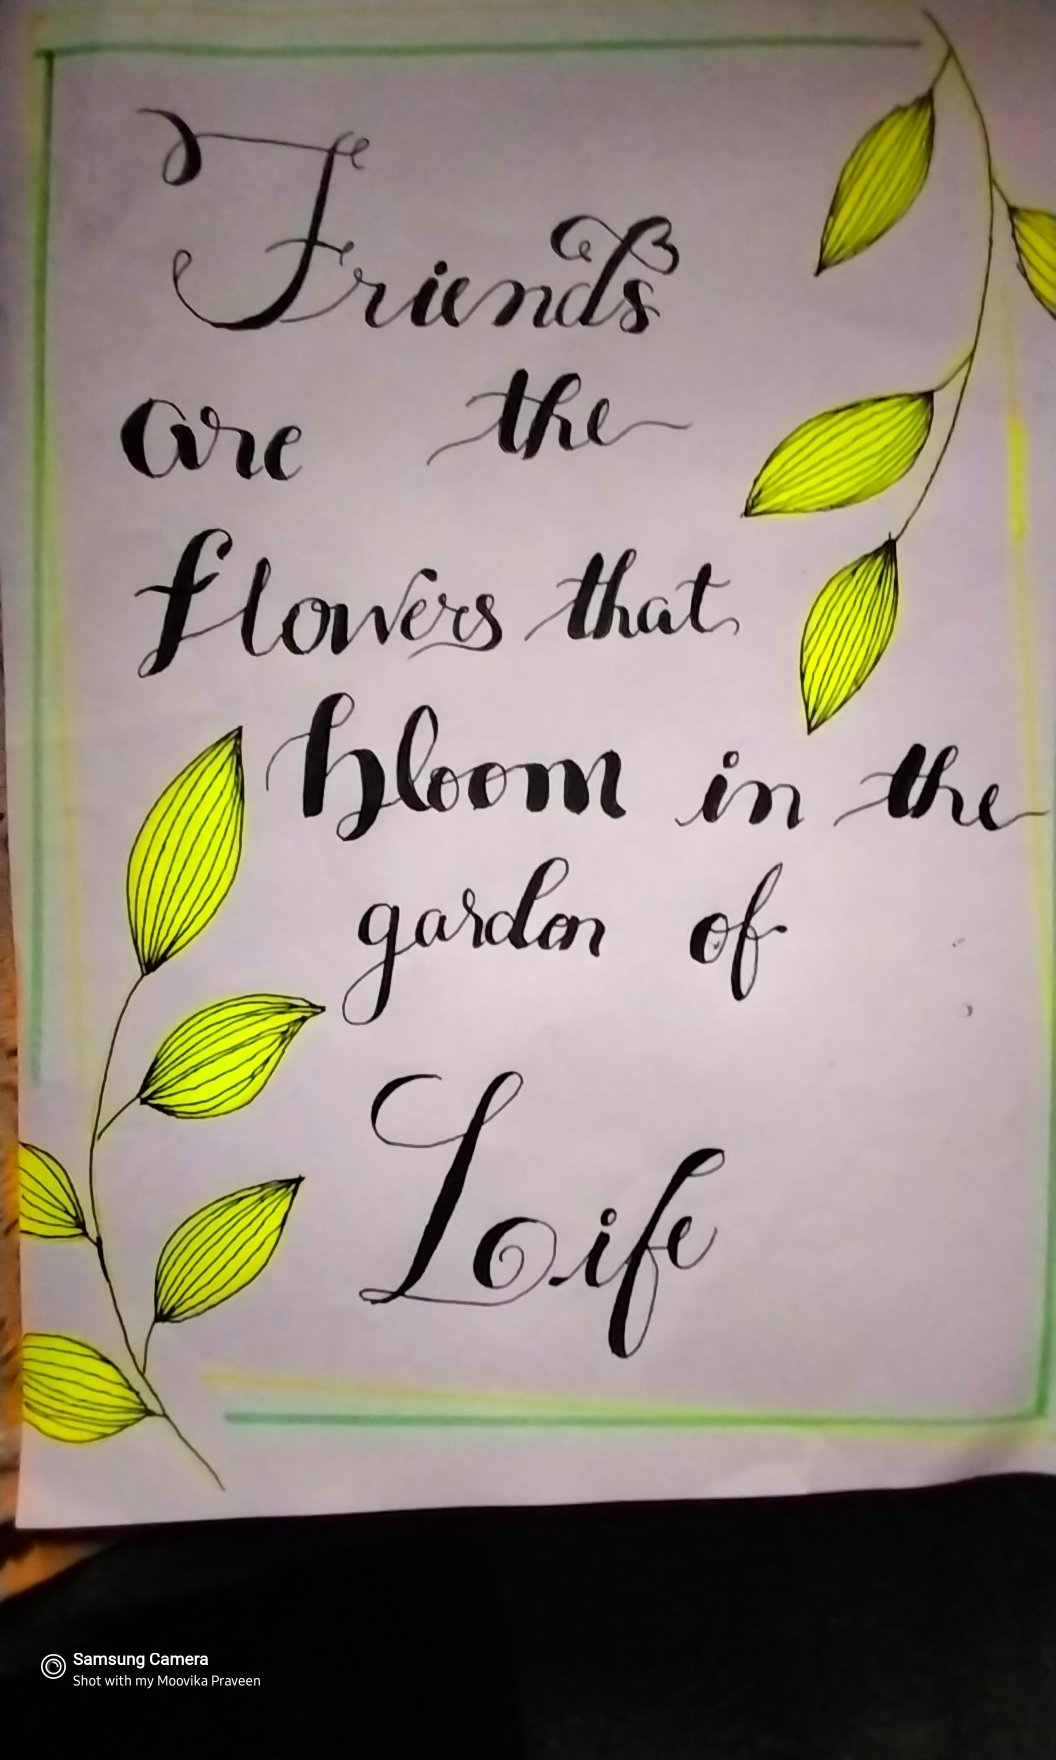 Friends
are the
flowers that
bloom in the
garden of
Life
Samsung Camera
Shot with my Moovika Praveen